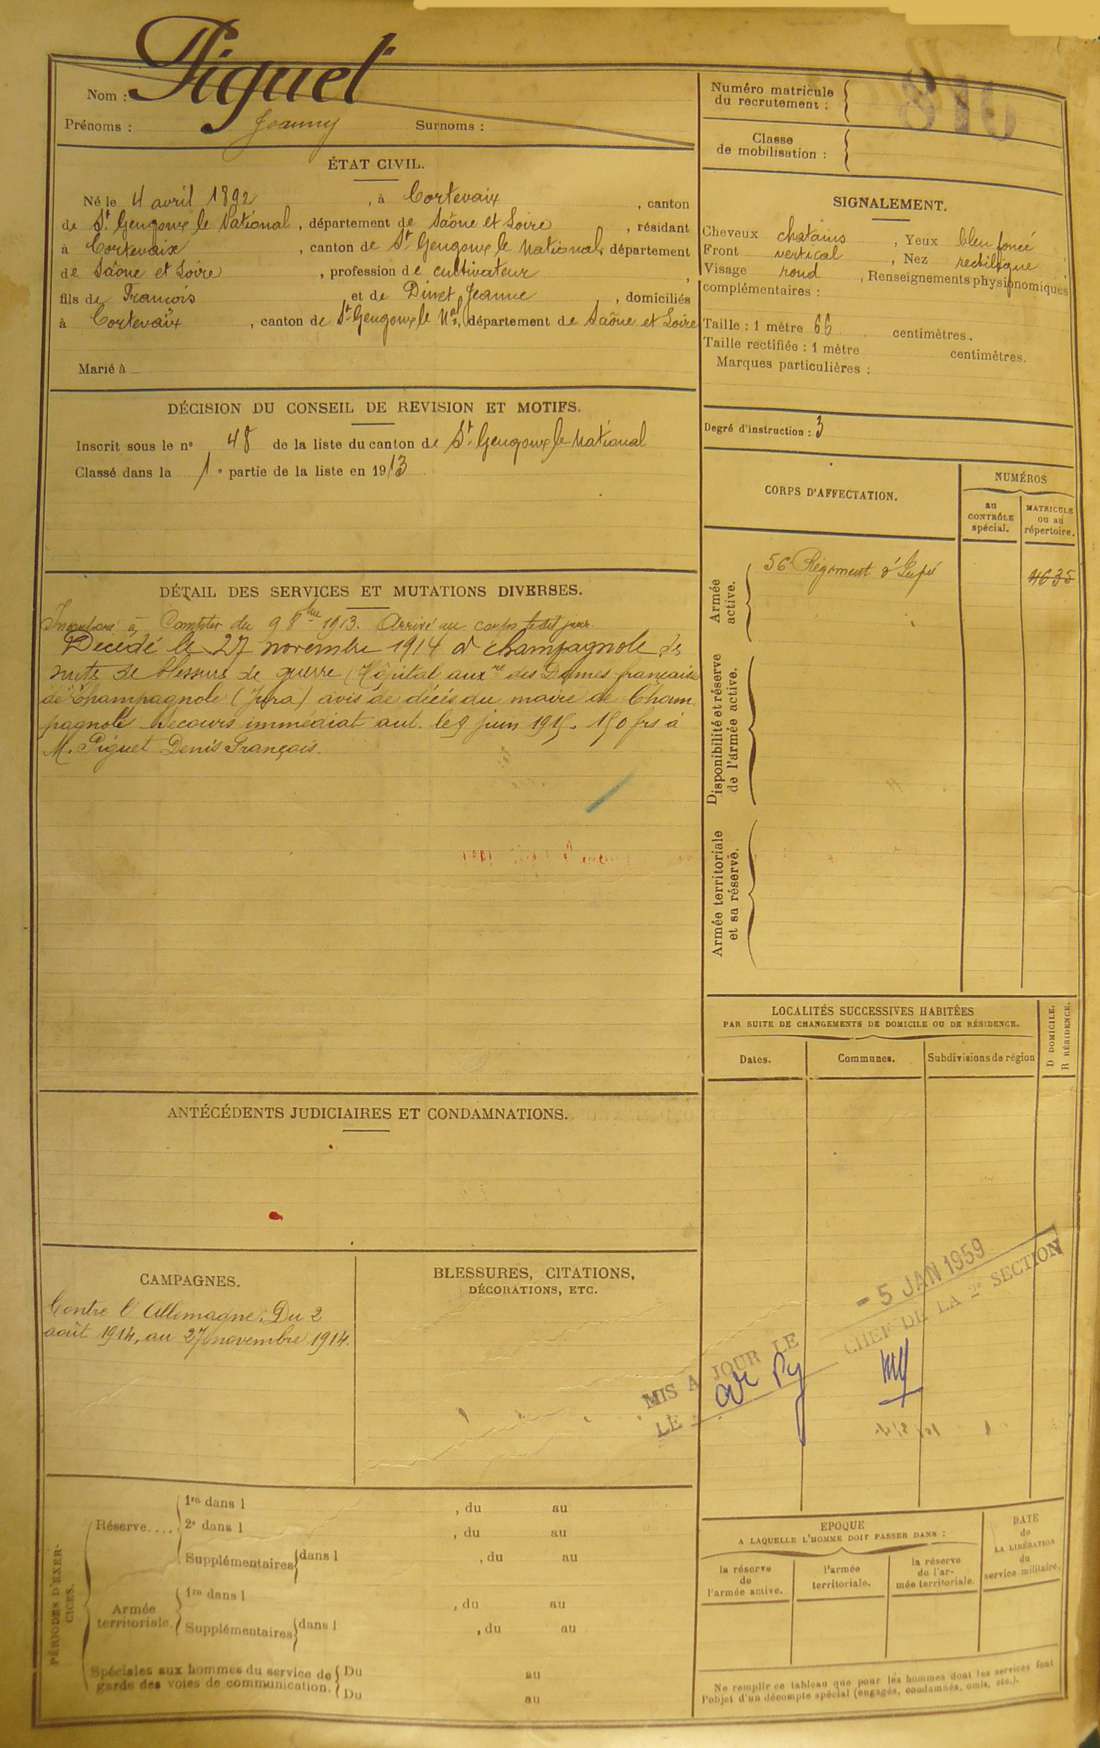 Nom : Piguet
Prénoms : Joanny Surnoms :
ÉTAT CIVIL.
Né le 4 avril 1892, à Cortevaix, canton
de St Gengoux le National, département de Saône et Loire, résidant
à Cortevaix, canton de St Gengoux le National, département
de Saône et Loire, profession de cultivateur,
fils de François et de Dinet Jeanne, domiciliés
à Cortevaix, canton de St Gengoux le Nal, département de Saône et Loire
Marié à
DÉCISION DU CONSEIL DE REVISION ET MOTIFS.
Inscrit sous le n° 48 de la liste du canton de St Gengoux le National
Classé dans la 1e partie de la liste en 1913
DÉTAIL DES SERVICES ET MUTATIONS DIVERSES.
Incorporé à Compter du 9 8bre 1913. Arrivé au corps ledit jour.
Décédé le 27 novembre 1914 à Champagnole des
suite de blessure de guerre (Hôpital auxre des Dames française
de Champagnole (Jura) avis de décès du maire de Cham
pagnole. Secours immédiat aut. le 9 juin 1915. 150 frs à
M. Piguet Denis François.
ANTÉCÉDENTS JUDICIAIRES ET CONDAMNATIONS.
CAMPAGNES.
Contre l'Allemagne. Du 2
août 1914, au 27 novembre 1914.
BLESSURES, CITATIONS,
DÉCORATIONS, ETC.
PÉRIODES D'EXER-
CICES.
Réserve....
1re dans l , du au
2e dans l , du au
Supplémentaires dans l , du au
Armée
territoriale.
1re dans l , du au
Supplémentaires dans l , du au
Spéciales aux hommes du service de
garde des voies de communication.
Du au
Du au
Numéro matricule
du recrutement :
Classe
de mobilisation :
SIGNALEMENT.
Cheveux chatains, Yeux bleu foncé,
Front vertical, Nez rectiligne,
Visage rond, Renseignements physionomiques
complémentaires :
Taille : 1 mètre 66 centimètres.
Taille rectifiée : 1 mètre centimètres.
Marques particulières :
Degré d'instruction : 3
CORPS D'AFFECTATION.
NUMÉROS
au
CONTRÔLE
spécial.
MATRICULE
ou au
répertoire.
Armée
active.
56 Régiment d'Infrie 4635
Disponibilité et réserve
de l'armée active.
Armée territoriale
et sa réserve.
LOCALITÉS SUCCESSIVES HABITÉES
PAR SUITE DE CHANGEMENTS DE DOMICILE OU DE RÉSIDENCE.
Dates.
Communes.
Subdivisions de région
D DOMICILE.
R RÉSIDENCE.
- 5 JAN 1959
MIS A JOUR LE
LE CHEF DE LA 2e SECTION
EPOQUE
A LAQUELLE L'HOMME DOIT PASSER DANS :
la réserve
de
l'armée active.
l'armée
territoriale.
la réserve
de l'ar-
mée territoriale.
DATE
de
LA LIBÉRATION
du
service militaire.
Ne remplir ce tableau que pour les hommes dont les services font
l'objet d'un décompte spécial (engagés, condamnés, omis, etc.).